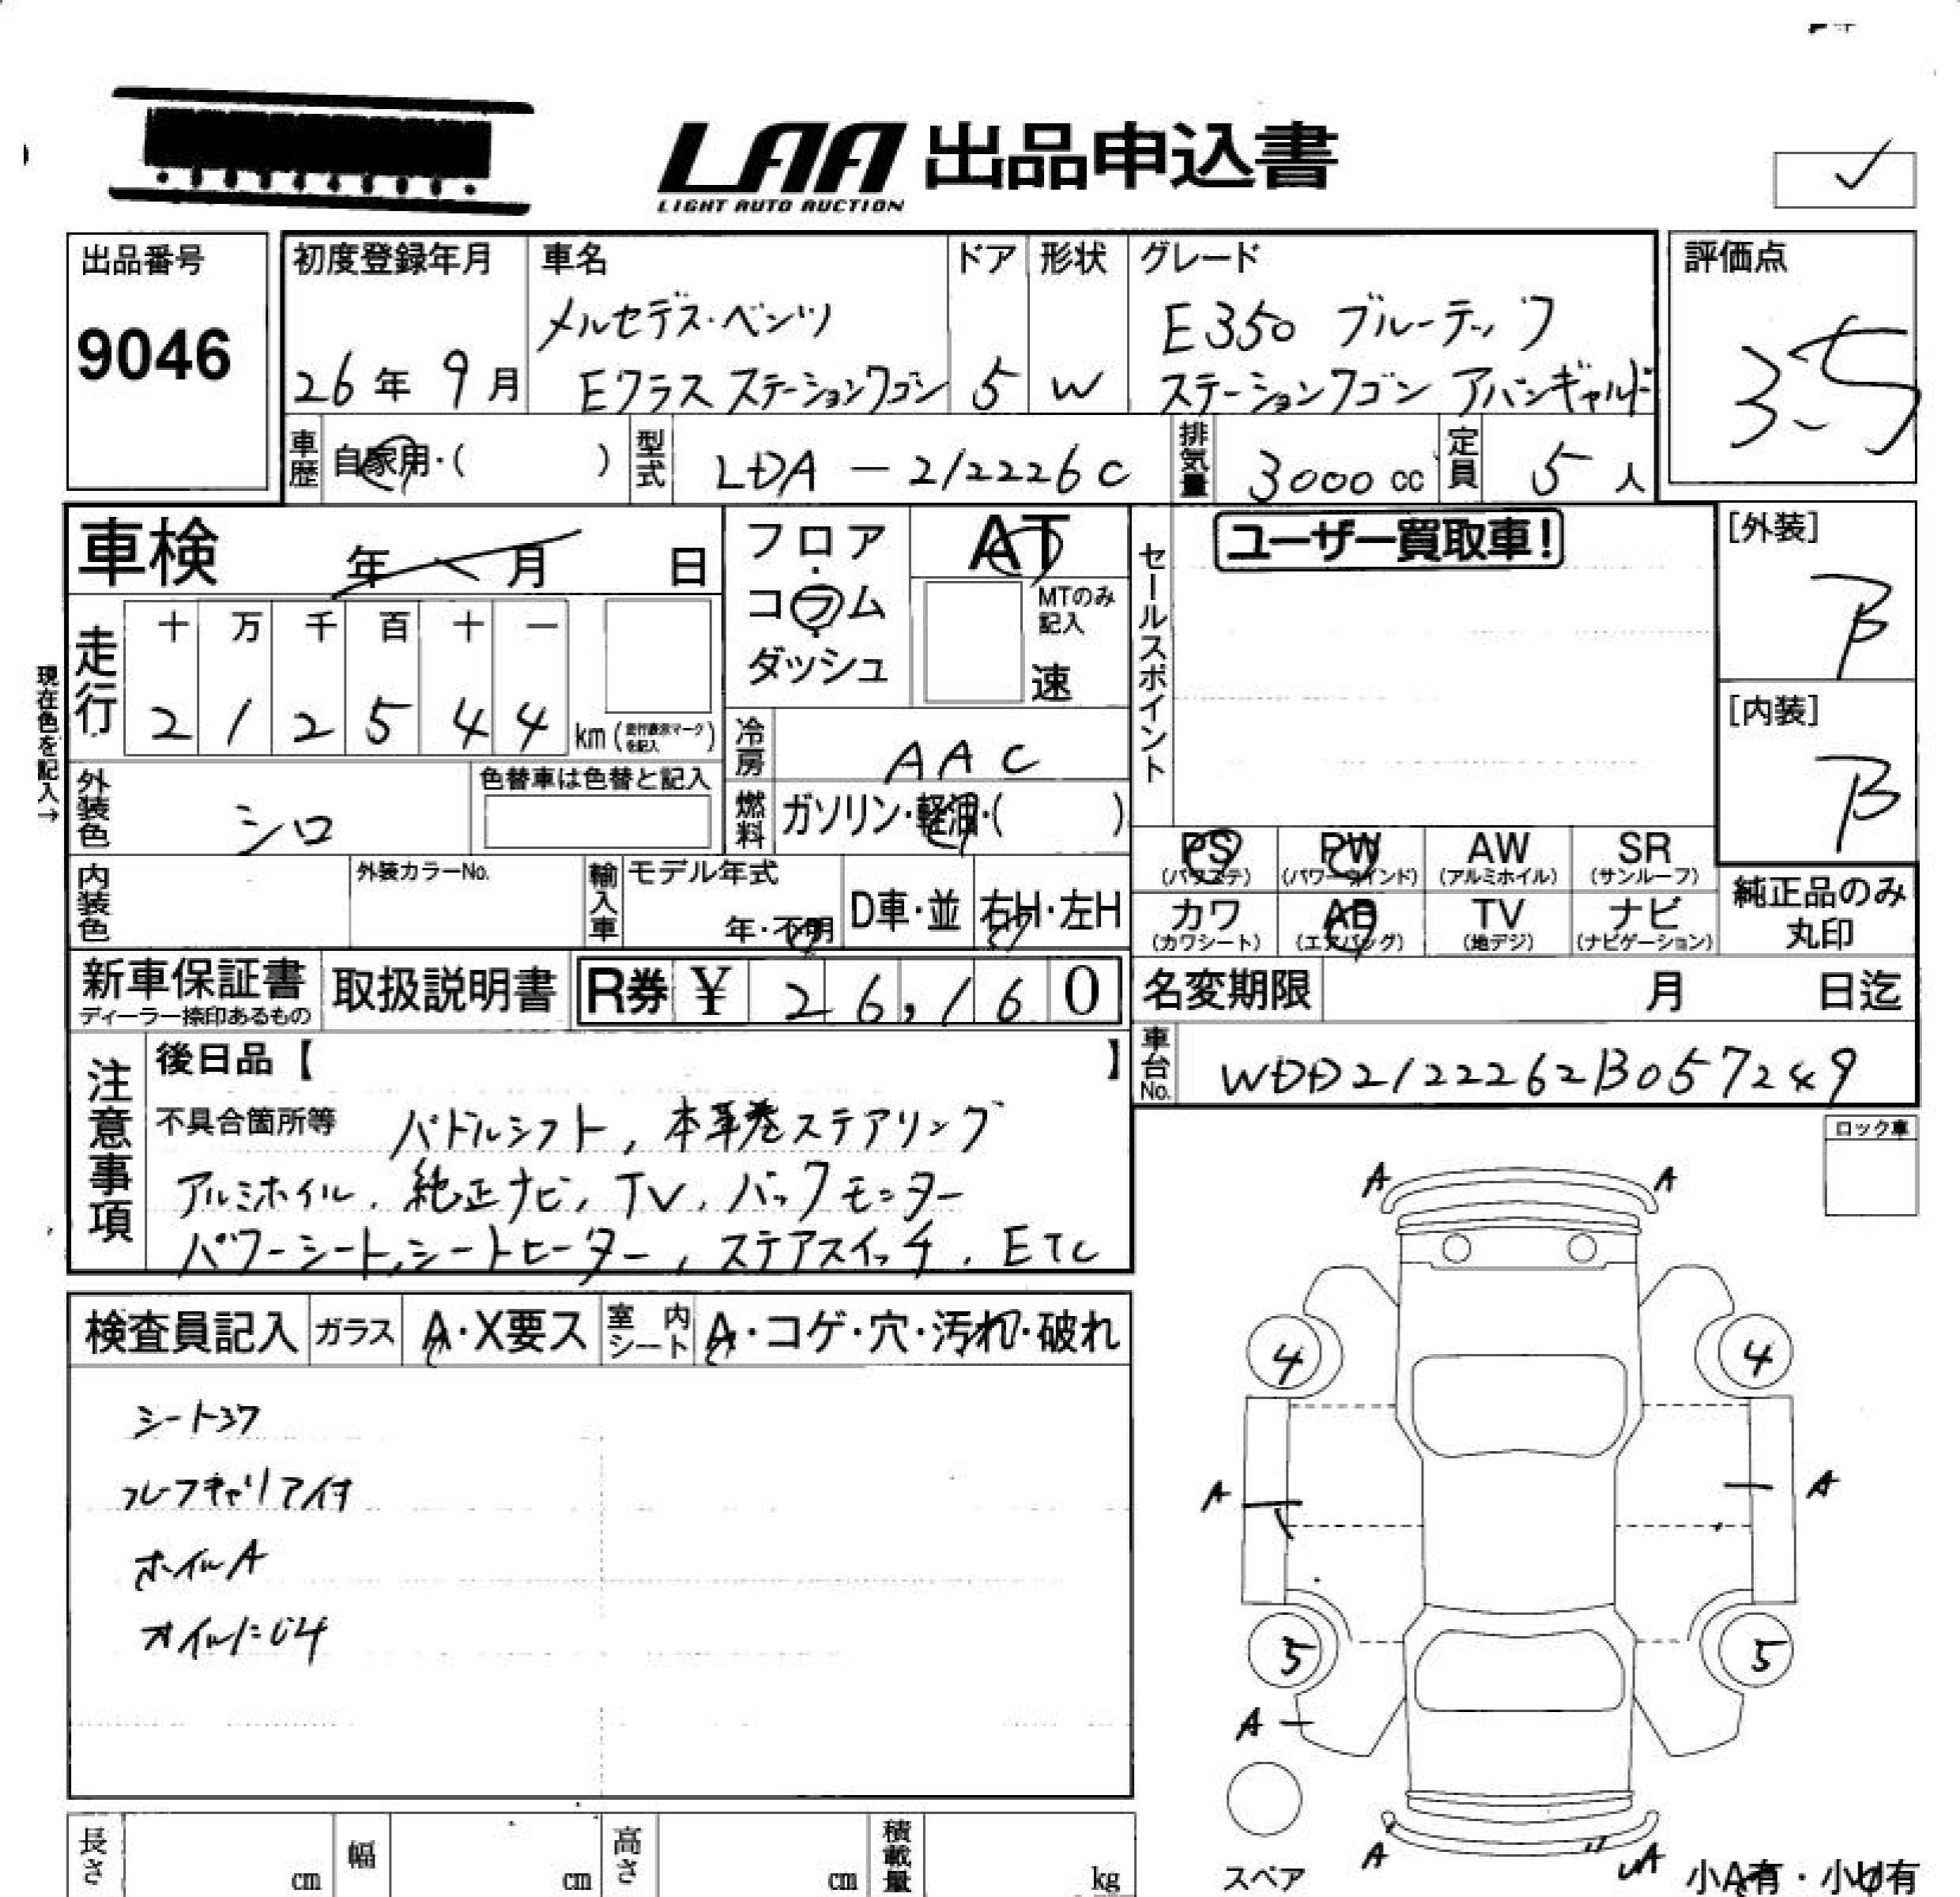 LAA 出品申込書
LIGHT AUTO AUCTION
出品番号
9046
初度登録年月
26年 9月
車名
メルセデス・ベンツ
Eクラス ステーションワゴン
ドア
5
形状
W
グレード
E350 ブルーテック
ステーションワゴン アバンギャルド
評価点
3.5
車歴 自家用・( )
型式 LDA-212226C
排気量 3000 cc
定員 5人
車検 年 月 日
フロア
コラム
ダッシュ
AT
MTのみ
記入
速
セールスポイント
ユーザー買取車!
[外装]
B
[内装]
B
現在色を記入→
走行
十 万 千 百 十 一
2 1 2 5 4 4 km (走行表示マークを記入)
冷房 AAC
外装色 シロ
色替車は色替と記入
燃料 ガソリン・軽油・( )
PS (パワステ)
PW (パワーウインド)
AW (アルミホイル)
SR (サンルーフ)
カワ (カワシート)
AB (エアバッグ)
TV (地デジ)
ナビ (ナビゲーション)
純正品のみ
丸印
内装色
外装カラーNo.
輸入車 モデル年式
年・不明
D車・並
右H・左H
新車保証書
ディーラー捺印あるもの
取扱説明書
R券 ¥ 26,160
名変期限 月 日迄
車台No. WDD2122262B057249
注意事項
後日品【 】
不具合箇所等 パドルシフト, 本革巻ステアリング
アルミホイル, 純正ナビ, TV, バックモニター
パワーシート, シートヒーター, ステアスイッチ, ETC
ロック車
検査員記入 ガラス A・X要ス 室内シート A・コゲ・穴・汚れ・破れ
シートスワ
ルーフキャリア付
ホイルA
オイルにじみ
A A
4 4
A A
5 5
A
スペア
A A
小A有・小U有
長さ cm
幅 cm
高さ cm
積載量 kg